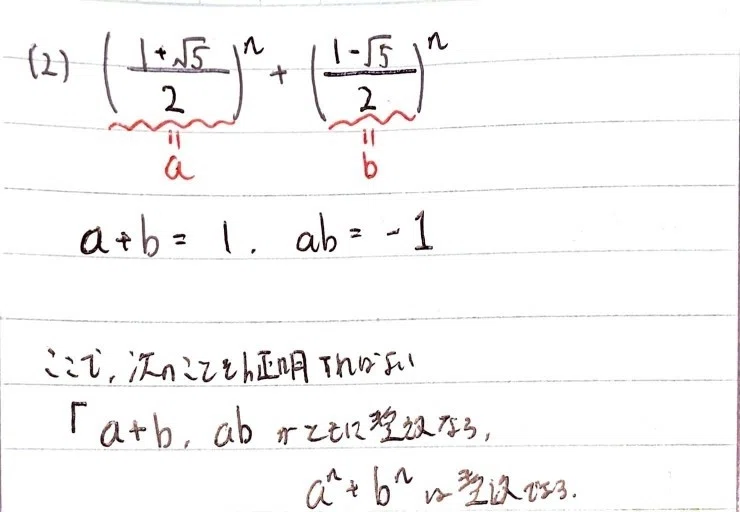 (2) (1+√5/2)^n + (1-√5/2)^n
= a = b
a+b = 1. ab = -1
ここで, 次のことを証明すればよい
「a+b, ab がともに整数なら,
a^n + b^n は整数である.